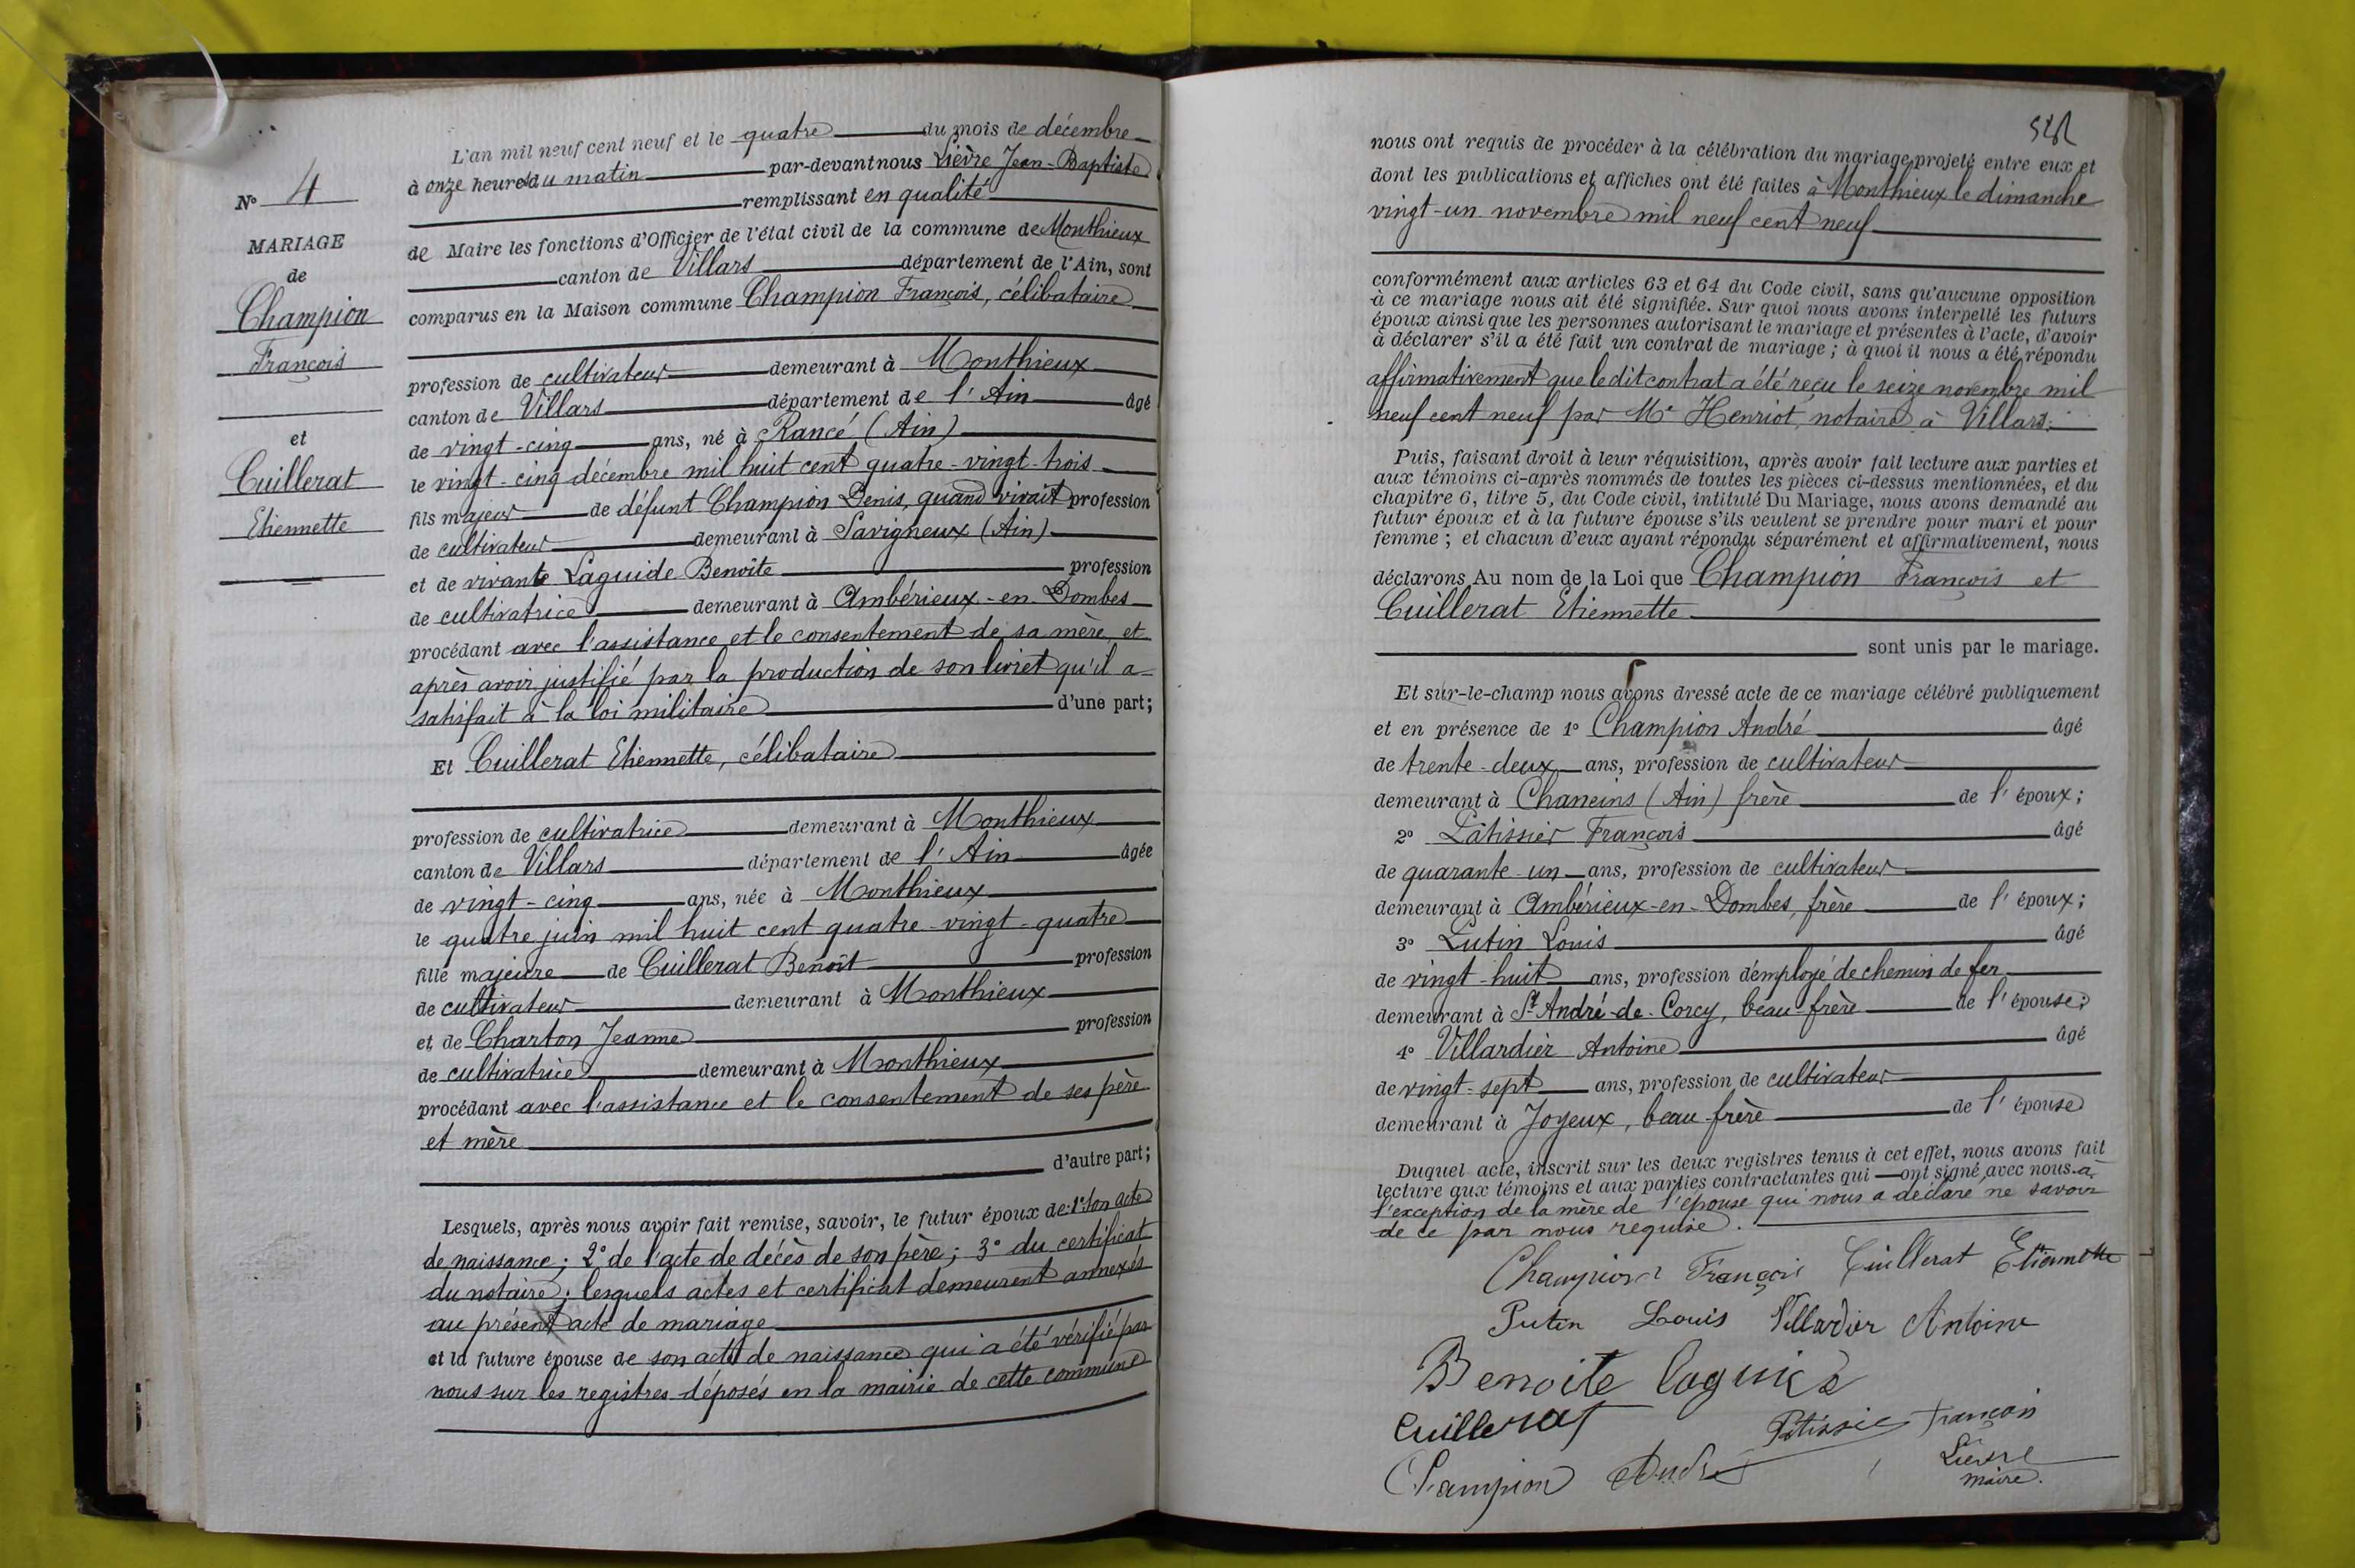 N° 4
MARIAGE
de
Champion
François
et
Cuillerat
Etiennette
L'an mil neuf cent neuf et le quatre du mois de décembre
à onze heures du matin par-devant nous Lièvre Jean-Baptiste
remplissant en qualité
de Maire les fonctions d'Officier de l'état civil de la commune de Monthieux
canton de Villars département de l'Ain, sont
comparus en la Maison commune Champion François, célibataire
profession de cultivateur demeurant à Monthieux
canton de Villars département de l'Ain âgé
de vingt-cinq ans, né à Rancé (Ain)
le vingt-cinq décembre mil huit cent quatre-vingt-trois
fils majeur de défunt Champion Denis, quand vivait profession
de cultivateur demeurant à Savigneux (Ain)
et de vivante Laguide Benoîte profession
de cultivatrice demeurant à Ambérieux-en-Dombes
procédant avec l'assistance et le consentement de sa mère et
après avoir justifié par la production de son livret qu'il a
satisfait à la loi militaire d'une part;
Et Cuillerat Etiennette, célibataire
profession de cultivatrice demeurant à Monthieux
canton de Villars département de l'Ain âgée
de vingt-cinq ans, née à Monthieux
le quatre juin mil huit cent quatre-vingt-quatre
fille majeure de Cuillerat Benoît profession
de cultivateur demeurant à Monthieux
et de Charton Jeanne profession
de cultivatrice demeurant à Monthieux
procédant avec l'assistance et le consentement de ses père
et mère
d'autre part;
Lesquels, après nous avoir fait remise, savoir, le futur époux de: 1° son acte
de naissance; 2° de l'acte de décès de son père; 3° du certificat
du notaire; lesquels actes et certificat demeurent annexés
au présent acte de mariage
et la future épouse de son acte de naissance qui a été vérifié par
nous sur les registres déposés en la mairie de cette commune
nous ont requis de procéder à la célébration du mariage projeté entre eux et
dont les publications et affiches ont été faites à Monthieux le dimanche
vingt-un novembre mil neuf cent neuf
conformément aux articles 63 et 64 du Code civil, sans qu'aucune opposition
à ce mariage nous ait été signifiée. Sur quoi nous avons interpellé les futurs
époux ainsi que les personnes autorisant le mariage et présentes à l'acte, d'avoir
à déclarer s'il a été fait un contrat de mariage; à quoi il nous a été répondu
affirmativement que le dit contrat a été reçu le seize novembre mil
neuf cent neuf par Me Henriot, notaire à Villars.
Puis, faisant droit à leur réquisition, après avoir fait lecture aux parties et
aux témoins ci-après nommés de toutes les pièces ci-dessus mentionnées, et du
chapitre 6, titre 5, du Code civil, intitulé Du Mariage, nous avons demandé au
futur époux et à la future épouse s'ils veulent se prendre pour mari et pour
femme; et chacun d'eux ayant répondu séparément et affirmativement, nous
déclarons Au nom de la Loi que Champion François et
Cuillerat Etiennette
sont unis par le mariage.
Et sur-le-champ nous avons dressé acte de ce mariage célébré publiquement
et en présence de 1° Champion André âgé
de trente-deux ans, profession de cultivateur
demeurant à Chaneins (Ain) frère de l'époux;
2° Pâtissier François âgé
de quarante-un ans, profession de cultivateur
demeurant à Ambérieux-en-Dombes, frère de l'époux;
3° Putin Louis âgé
de vingt-huit ans, profession d'employé de chemin de fer
demeurant à St-André-de-Corcy, beau-frère de l'épouse;
4° Villardier Antoine âgé
de vingt-sept ans, profession de cultivateur
demeurant à Joyeux, beau-frère de l'épouse
Duquel acte, inscrit sur les deux registres tenus à cet effet, nous avons fait
lecture aux témoins et aux parties contractantes qui ont signé avec nous à
l'exception de la mère de l'épouse qui nous a déclaré ne savoir
de ce par nous requise.
Champion François Cuillerat Etiennette
Putin Louis Villardier Antoine
Benoite laguide
Cuillerat
Patissier françois
Champion André
Lièvre
maire.